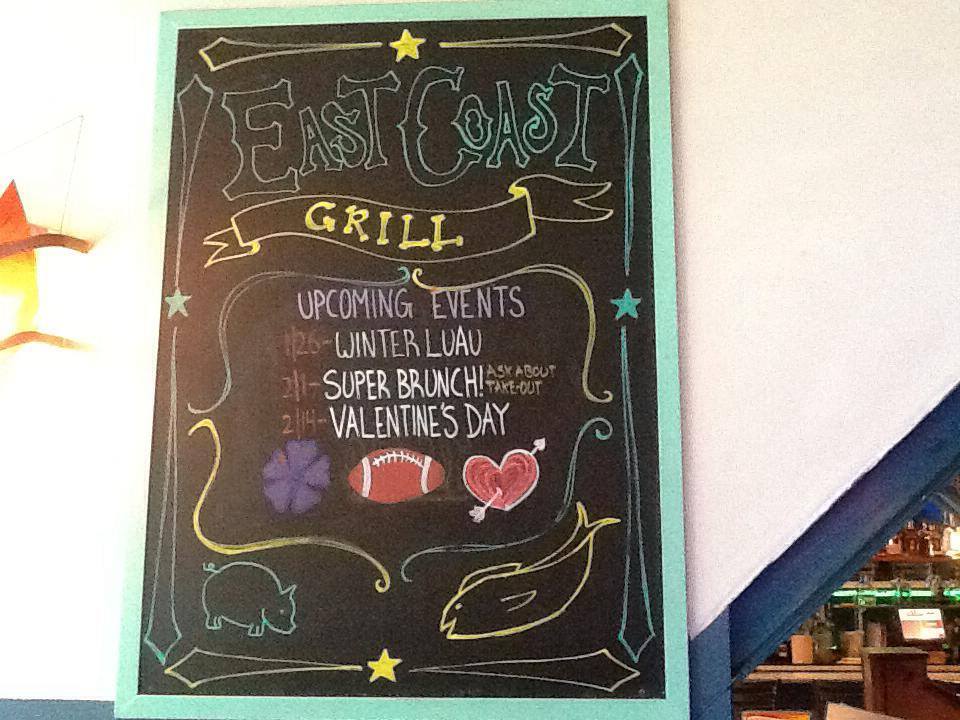 EAST COAST
GRILL
UPCOMING EVENTS
1/26- WINTER LUAU
2/1- SUPER BRUNCH! ASK ABOUT
TAKE-OUT
2/14- VALENTINE'S DAY